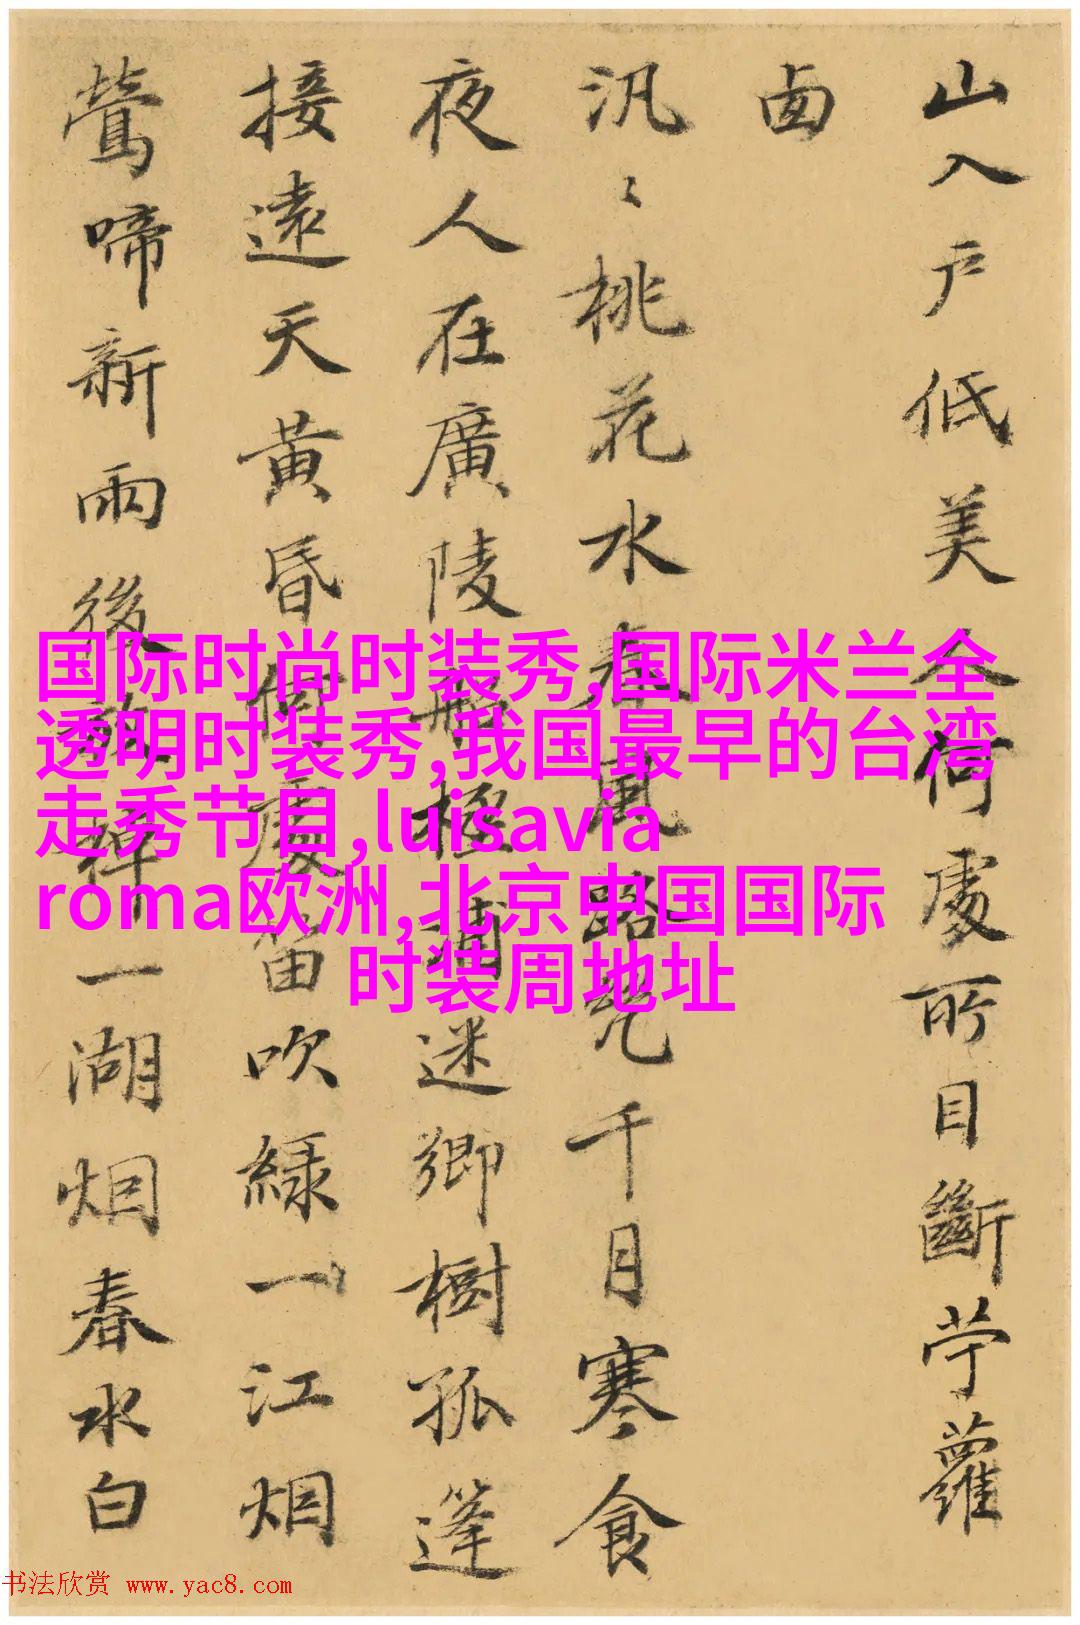 山入戶低美人何處所目斷苧蘿
汎〻桃花水春風路幾千月寒食
夜人在廣陵船極浦迷鄉樹孤篷
接遠天黃昏何處笛吹綠一江烟
鶯啼新雨後禪一湖烟春水白
国际时尚时装秀,国际米兰全
透明时装秀,我国最早的台湾
走秀节目,luisavia
roma欧洲,北京中国国际
时装周地址
书法欣赏 www.yac8.com